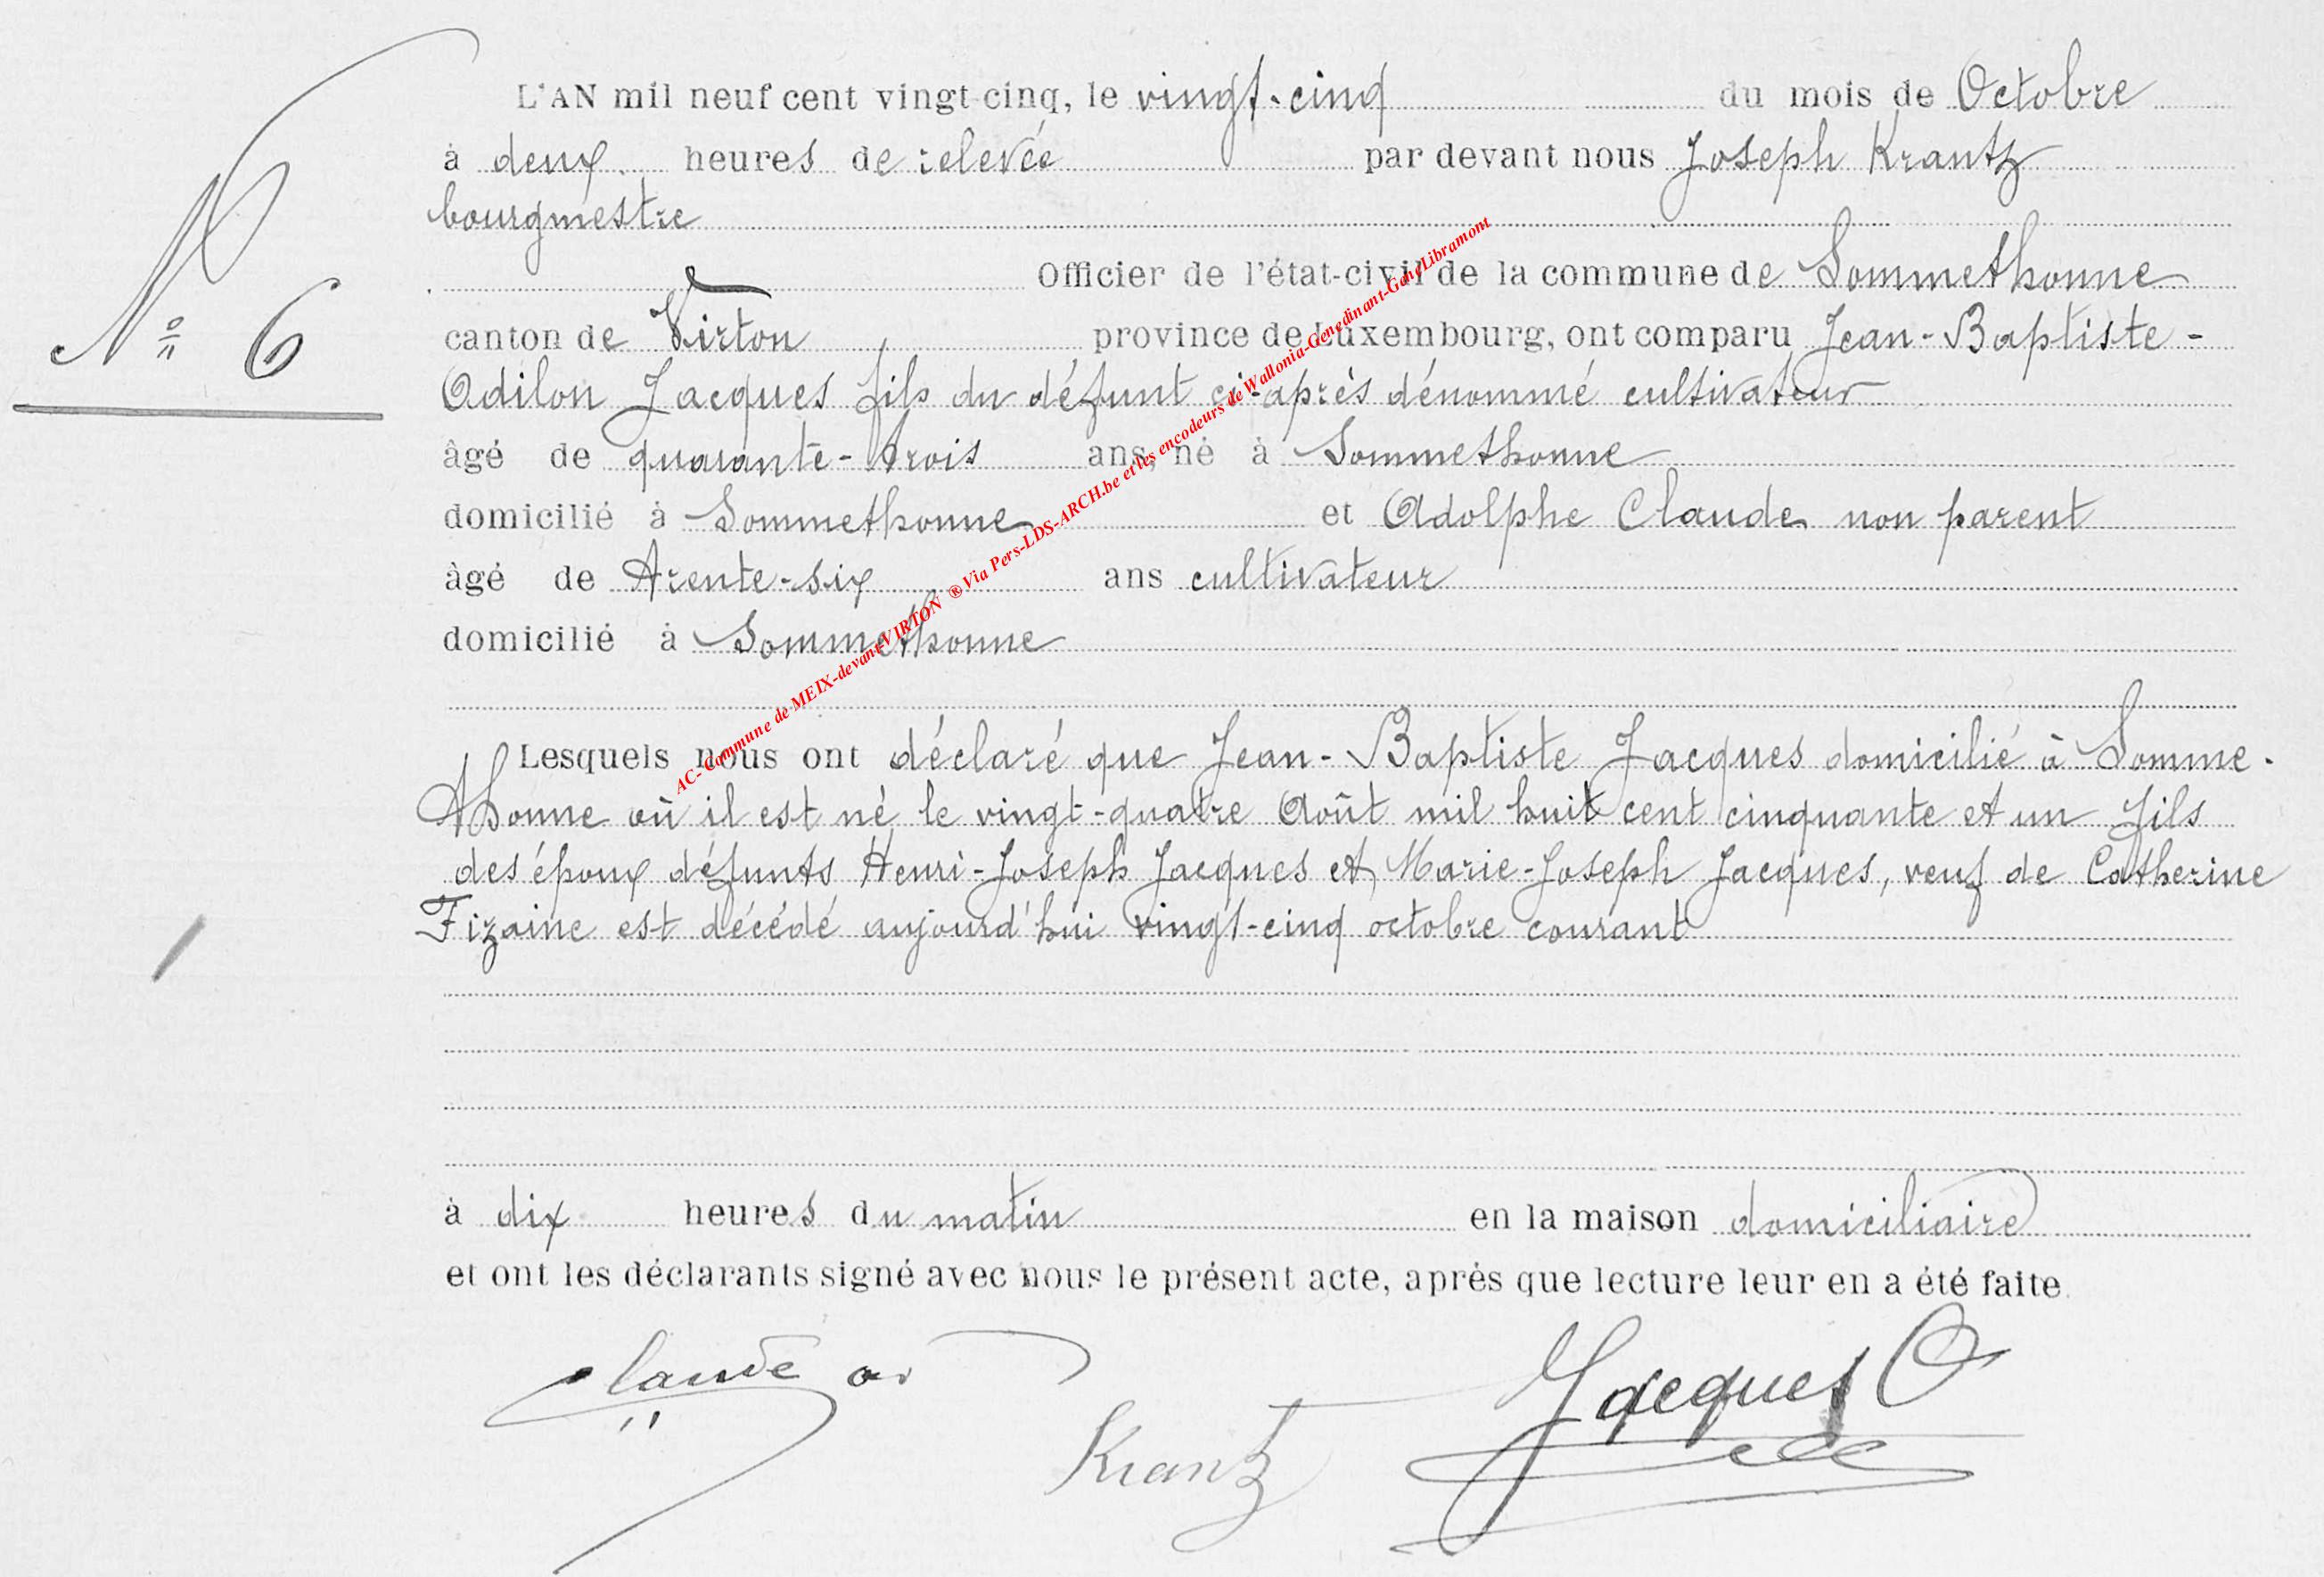 L'AN mil neuf cent vingt-cinq, le vingt-cinq du mois de Octobre
à deux heures de relevée par devant nous Joseph Krantz
bourgmestre
Officier de l'état-civil de la commune de Sommethonne
N° 6
canton de Virton province de Luxembourg, ont comparu Jean-Baptiste-
Odilon Jacques fils du défunt ci-après dénommé cultivateur
âgé de quarante-trois ans, né à Sommethonne
domicilié à Sommethonne et Adolphe Claude non parent
âgé de trente-six ans cultivateur
domicilié à Sommethonne
AC- Commune de MEIX-devant-VIRTON ® Via Pers-LDS-ARCH.be et les encodeurs de Wallonia-Genedinant-GameLibramont
Lesquels nous ont déclaré que Jean-Baptiste Jacques domicilié à Somme-
thonne où il est né le vingt-quatre Août mil huit cent cinquante et un fils
des époux défunts Henri-Joseph Jacques et Marie-Joseph Jacques, veuf de Catherine
Fizaine est décédé aujourd'hui vingt-cinq octobre courant
à dix heures du matin en la maison domiciliaire
et ont les déclarants signé avec nous le présent acte, après que lecture leur en a été faite.
Claude ad
Jacques O
Krantz